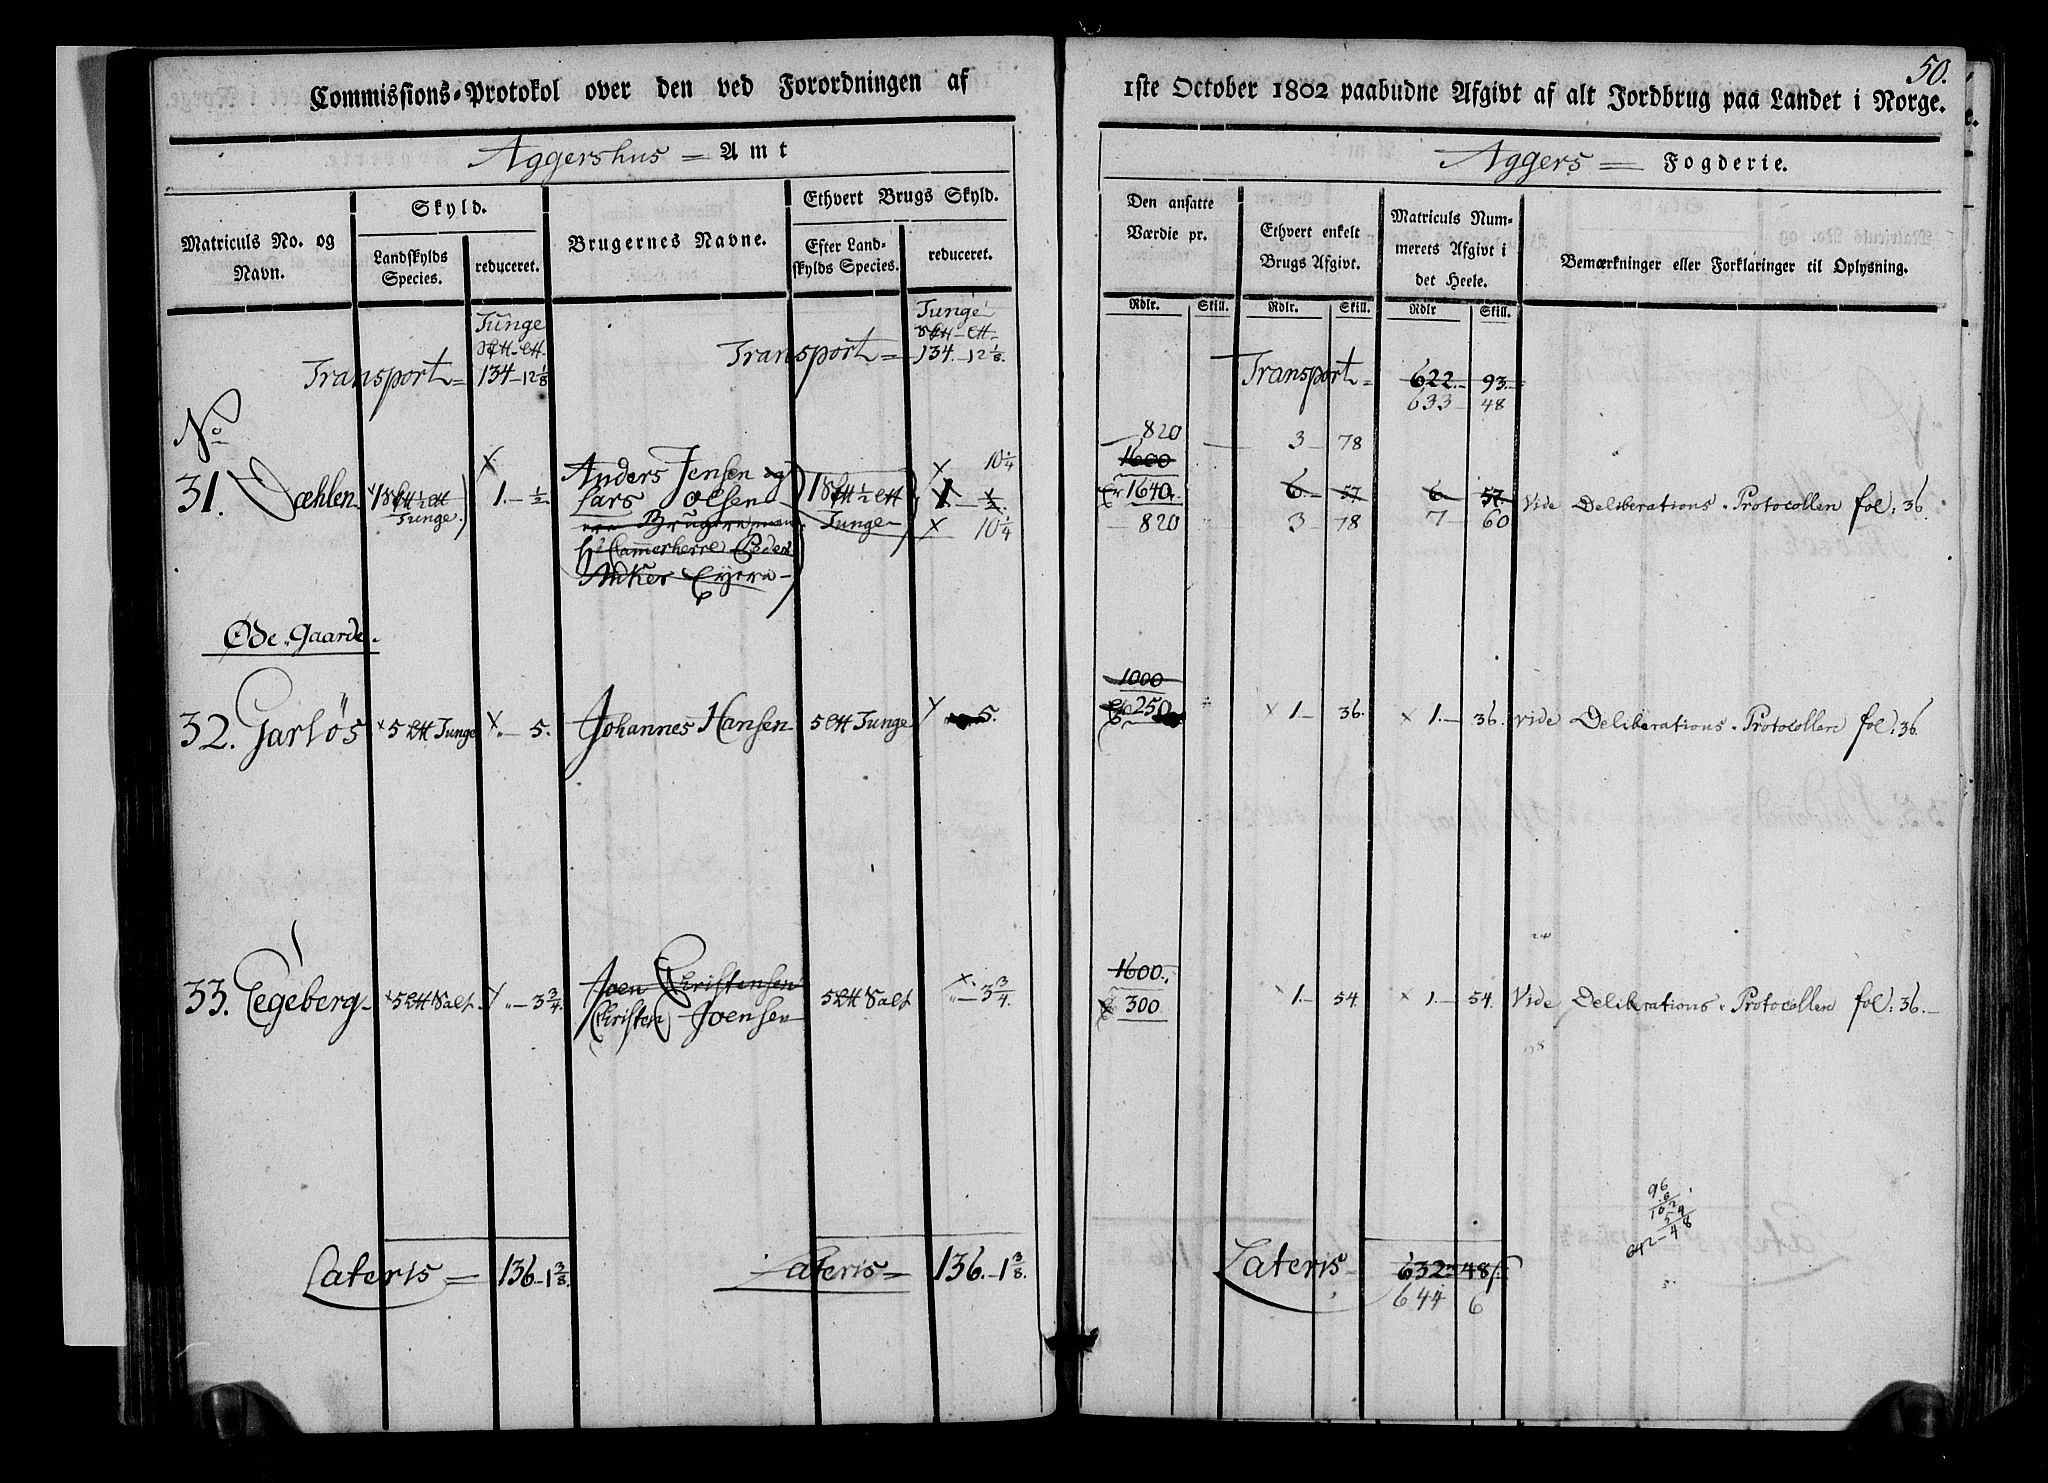 50.
Commissions-Protokol over den ved Forordningen af 1ste October 1802 paabudne Afgivt af alt Jordbrug paa Landet i Norge.
Aggershus = Amt
Aggers = Fogderie.
Matriculs No. og Navn.
Skyld.
Landskylds Species.
reduceret.
Brugernes Navne.
Ethvert Brugs Skyld.
Efter Landskylds Species.
reduceret.
Den ansatte Værdie pr.
Ethvert enkelt Brugs Afgivt.
Matriculs Nummerets Afgivt i det Heele.
Bemærkninger eller Forklaringer til Oplysning.
Rdlr. Skill. Rdlr. Skill. Rdlr Skill.
Tunge
Tunge
Transport = 134 - 12 1/8
Transport = 134. - 12 1/8.
Transport = 622. - 93.
633 - 48
No
31. Dæhlen
Tunge.
1. - 1/2
Anders Jensen og
Lars Olsen
Hr Cammerherre Peder
Ankers Eyere
Tunge
10 1/4
1 - 1/2
10 1/4
820
1600
1640
820
3 - 78
6 - 57
3 - 78
6 - 57
7 - 60
Vide Deliberations-Protocollen fol: 36.
Øde-Gaarde.
32. Garløs
5 Tunge
5.
Johannes Hansen
5 Tunge
5.
1000
250
1. - 36.
1. - 36.
vide Deliberations-Protocollen fol: 36.
33. Egeberg
5 Salt
3 3/4
Joen Christensen
Christen Joensen
5 Salt
3 3/4.
1600.
300
1. - 54.
1. - 54.
Vide Deliberations-Protocollen fol: 36.
96
6
102
54
642-48
Lateris = 136 - 1 3/8.
Lateris = 136. - 1 3/8.
Lateris 632 48
644 6